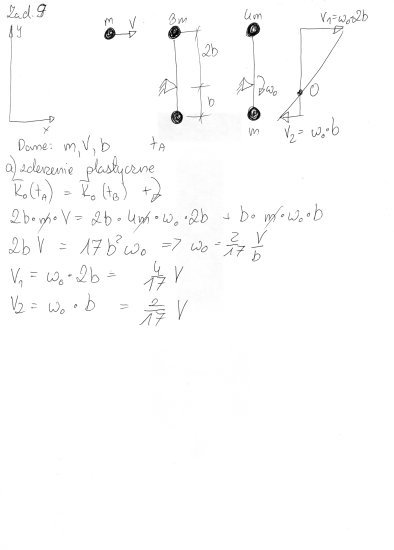 Zad. 9
y
x
m V
3m
2b
b
4m
ω₀
m
V₁=ω₀·2b
O
V₂ = ω₀·b
Dane: m, V, b tA
a) zderzenie plastyczne
K₀(tA) = K₀(tB) +
2b·m·V = 2b·4m·ω₀·2b + b·m·ω₀·b
2bV = 17b²ω₀ => ω₀ = 2/17 V/b
V₁ = ω₀·2b = 4/17 V
V₂ = ω₀·b = 2/17 V